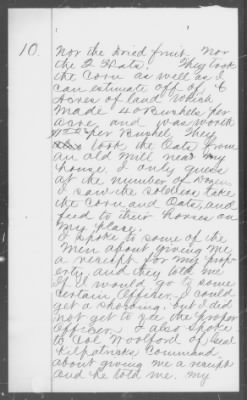 10. Nor the dried fruit. Nor
the 2 Hats. They took
the Corn as well as I
can estimate off of 6
Acres of land which
made 40 Bushels per
acre, and was worth
per Bushel. They
took the Oats from
an old Mill near my
house. I only guess
at the number of dozen
I saw the soldiers take
the corn and Oats, and
feed to their horses on
my place.
I spoke to some of the
Men about giving me
a receipt for my prop-
erty, and they told me
if I would go to some
certain Officer I could
get a showing. but I did
not get to see the proper
Officer. I also spoke
to Col Woolford of Genl
Kilpatricks Command
about giving me a receipt
and he told me. my